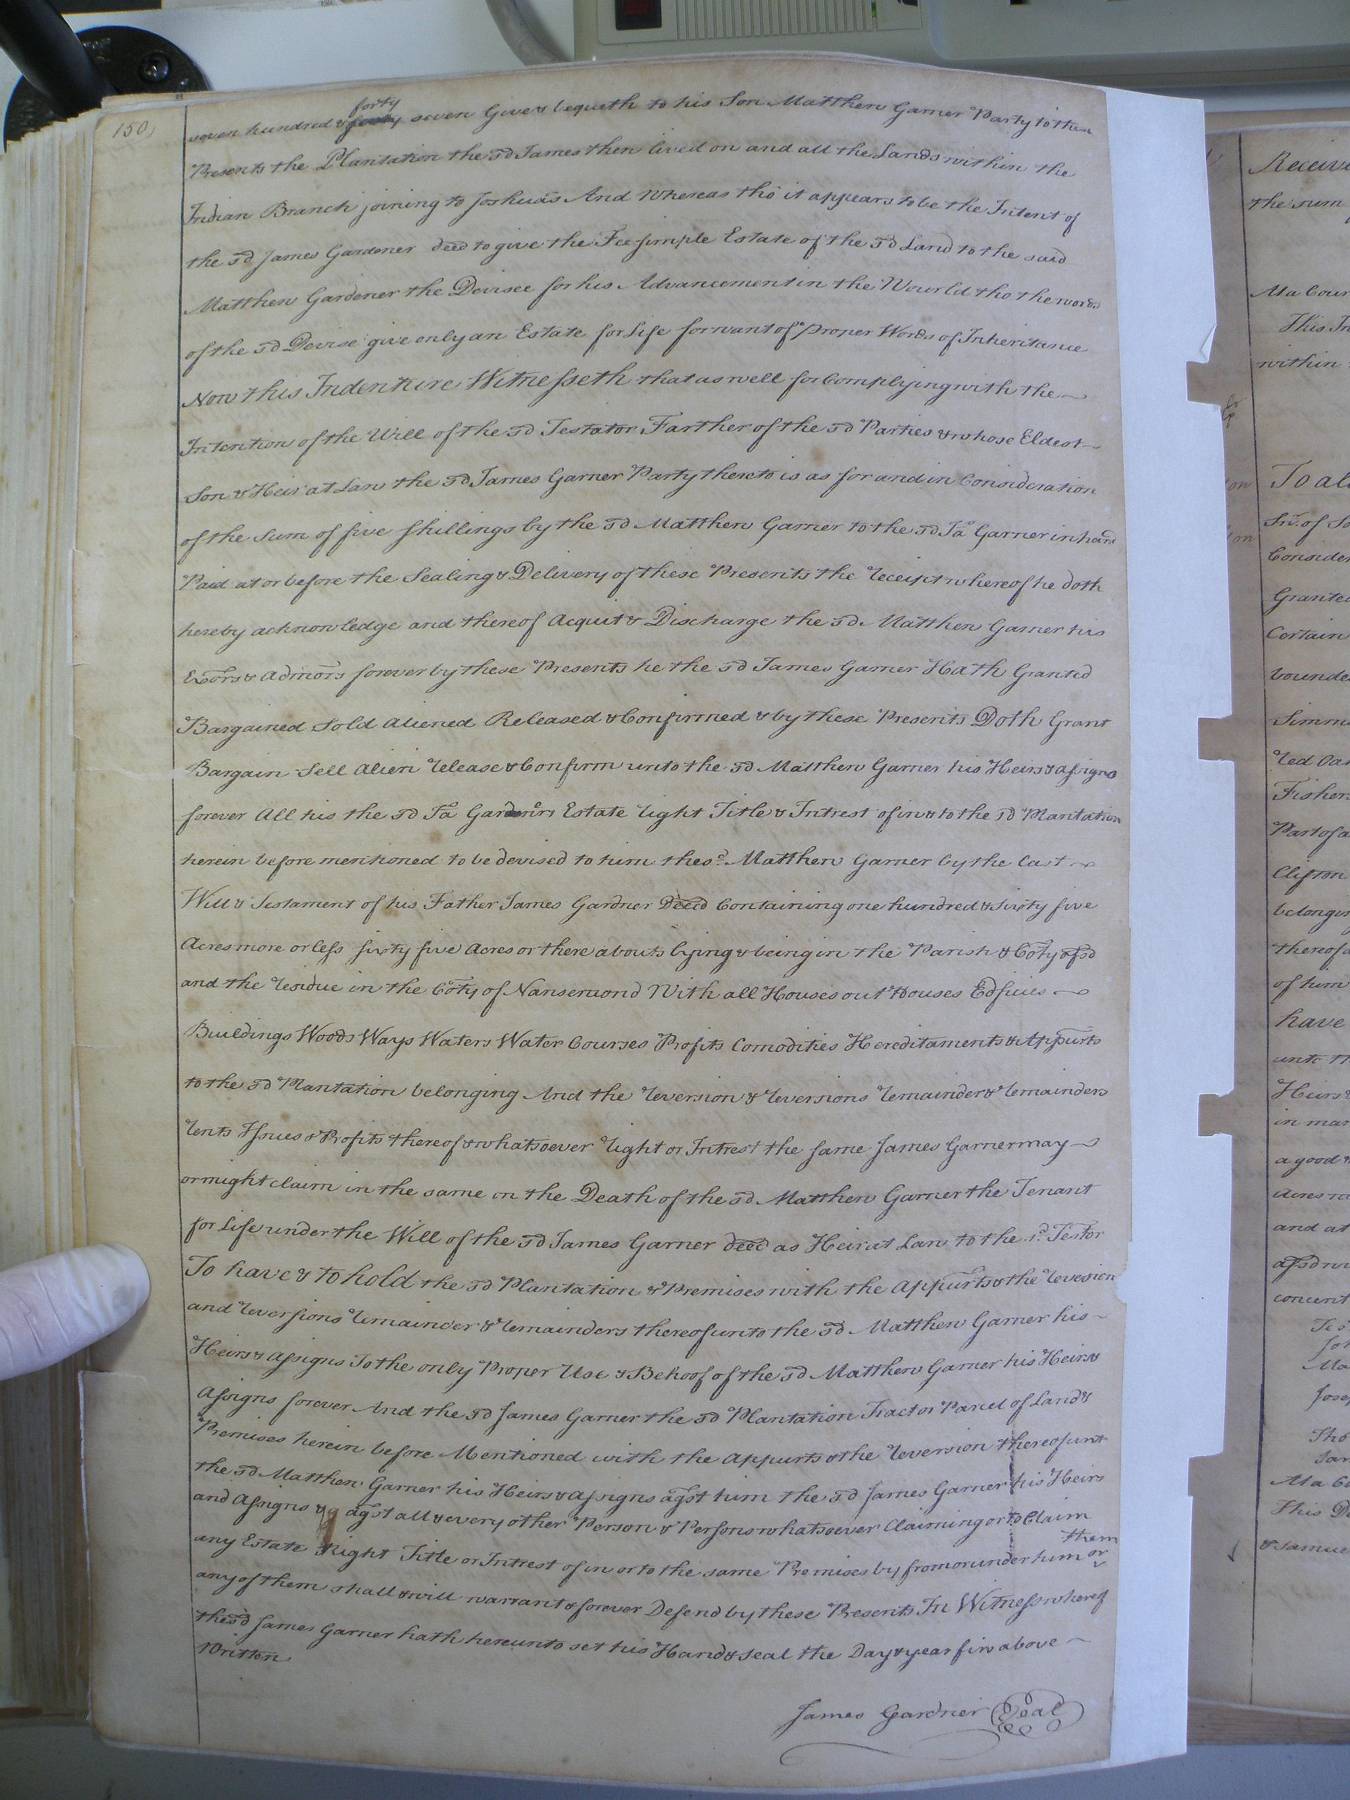 150
forty
seven hundred & forty seven Give & bequeth to his Son Matthew Garner Party to then
Presents the Plantation the sd James then lived on and all the Lands within the
Indian Branch joining to Joshua's And Whereas tho it appears to be the Intent of
the sd James Gardener decd to give the Fee simple Estate of the sd Land to the said
Matthew Gardener the Devisee for his Advancement in the Wourld tho the words
of the sd Devise give only an Estate for Life for want of proper Words of Inheritance
Now this Indenture Witnesseth that as well for Complying with the
Intention of the Will of the sd Testator Farther of the sd Parties & whose Eldest
Son & Heir at Law the sd James Garner Party thereto is as for and in Consideration
of the Sum of five Shillings by the sd Matthew Garner to the sd Ja Garner in hand
Paid at or before the Sealing & Delivery of these Presents the Receipt whereof he doth
hereby acknowledge and thereof Acquit & Discharge the sd Matthew Garner his
Exors & Admors forever by these Presents he the sd James Garner Hath Granted
Bargained Sold Aliened Released & Confirmed & by these Presents Doth Grant
Bargain Sell Alien Release & Confirm unto the sd Matthew Garner his Heirs & Assigns
forever All his the sd Ja Gardners Estate Right Title & Intrest of in & to the sd Plantation
herein before mentioned to be devised to him the sd Matthew Garner by the Last
Will & Testament of his Father James Gardner Decd Containing one hundred & sixty five
Acres more or less sixty five Acres or there abouts lying & being in the Parish & Coty afsd
and the Residue in the Coty of Nansemond With all Houses out Houses Edfices
Buildings Woods Ways Waters Water Courses Profits Comodities Hereditaments & Appurts
to the sd Plantation belonging And the Reversion & Reversions Remainder & Remainders
Rents Issues & Profits thereof & whatsoever Right or Intrest the same James Garner may
or might claim in the same on the Death of the sd Matthew Garner the Tenant
for Life under the Will of the sd James Garner decd as Heir at Law to the sd Testor
To have & to hold the sd Plantation & Premises with the Appurts & the Revesion
and Reversions Remainder & Remainders thereof unto the sd Matthew Garner his
Heirs & Assigns To the only Proper Use & Behoof of the sd Matthew Garner his Heirs &
Assigns forever And the sd James Garner the sd Plantation Tract or Parcel of Land &
Premises herein before Mentioned with the Appurts & the Reversion thereof unt
the sd Matthew Garner his Heirs & Assigns agst him the sd James Garner his Heirs
and Assigns & agst all & every other Person & Persons whatsoever Claiming or to Claim
any Estate Right Title or Intrest of in or to the same Premises by from or under him or
them
any of them shall & will warrant & forever Defend by these Presents In Witness whereof
the sd James Garner hath hereunto set his Hand & Seal the Day & year first above
Written
James Gardner Seal
Receive
the sum
At a Cour
This In
within
To all
Conside
Grante
Certain
bounde
Simm
Red Oa
Fisher
Part of a
Clifton
belongin
thereof
of him
have
unto th
Heirs &
in man
a good &
Acres
and at
concent
At a Co
This D
& Samue